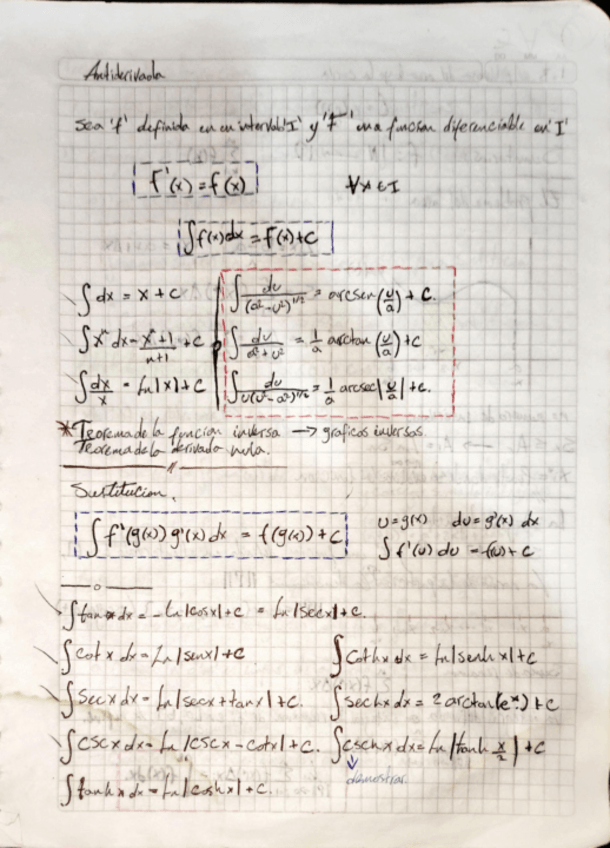 Antiderivada
Sea 'f' definida en un intervalo 'I' y 'F' una funcion diferenciable en 'I'
F'(x) = f(x) ∀x ∈ I
∫f(x)dx = F(x)+c
∫dx = x + c
∫xⁿ dx = xⁿ+1/n+1 + c
∫dx/x = Ln|x| + c
∫du/(a²-u²)^1/2 = arcsen(u/a) + c.
∫du/a²+u² = 1/a arctan(u/a) + c
∫du/u(u²-a²)^1/2 = 1/a arcsec|u/a| + c.
*Teorema de la funcion inversa → graficos inversos
Teorema de la derivada nula.
Sustitucion.
∫f'(g(x)) g'(x) dx = f(g(x)) + c
u = g(x) du = g'(x) dx
∫f'(u) du = f(u) + c
∫tan x dx = -Ln|cosx| + c = Ln|secx| + c.
∫cot x dx = Ln|senx| + c
∫secx dx = Ln|secx + tanx| + c.
∫cscx dx = Ln|cscx - cotx| + c.
∫tanh x dx = Ln|cosh x| + c.
∫coth x dx = Ln|senh x| + c
∫sech x dx = 2 arctan(eˣ) + c
∫csch x dx = Ln|tanh x/2| + c
demostrar